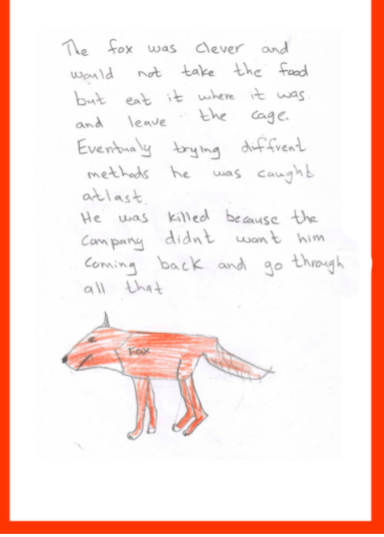 The fox was clever and
would not take the food
but eat it where it was
and leave the cage.
Eventualy trying diffrent
methods he was caught
atlast.
He was killed because the
Company didnt want him
coming back and go through
all that
Fox